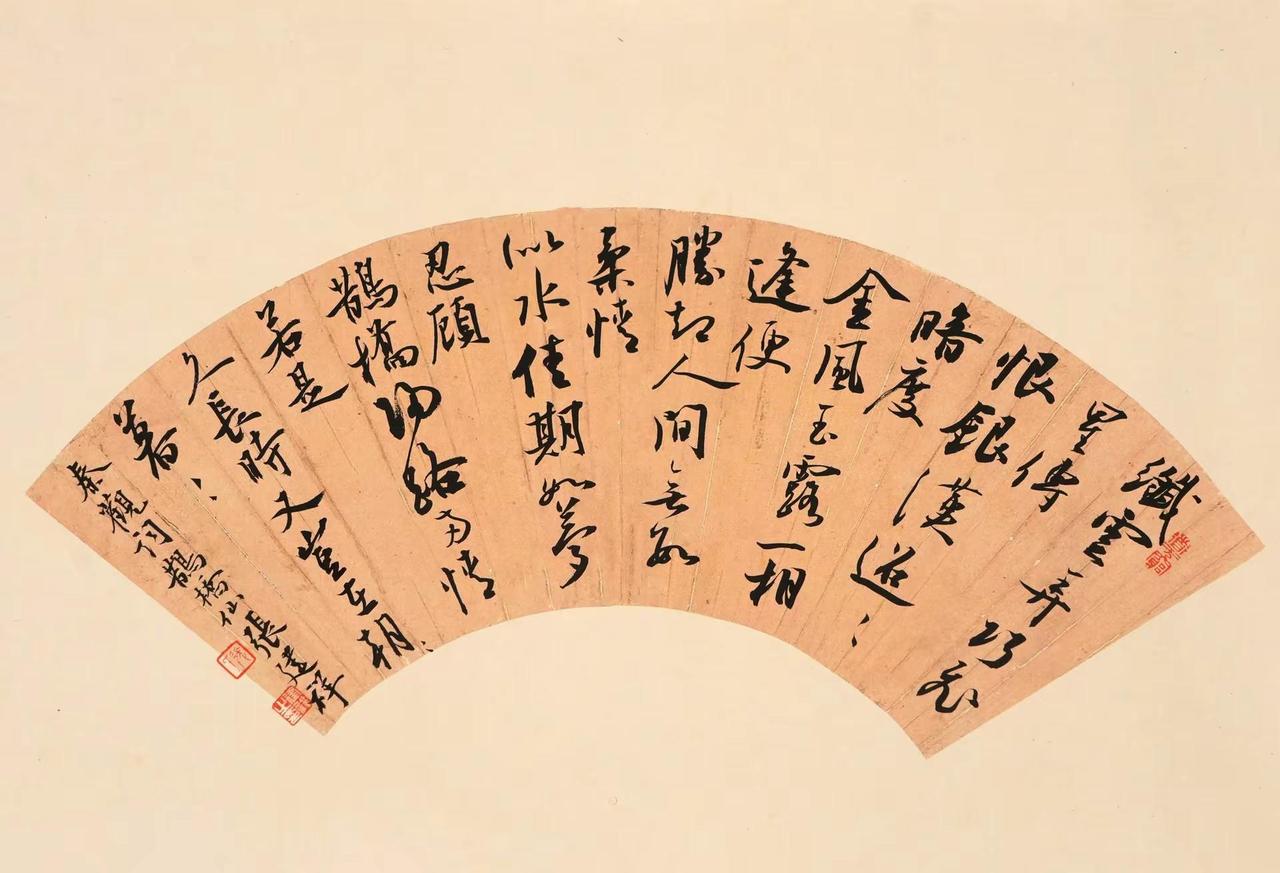 纖雲弄巧飛
星傳
恨銀漢迢〻
暗度
金風玉露一相
逢便
勝却人間無數
柔情
似水佳期如夢
忍顧
鵲橋歸路兩情
若是
久長時又豈在朝〻
暮〻
秦觀詞鵲橋仙張建祥